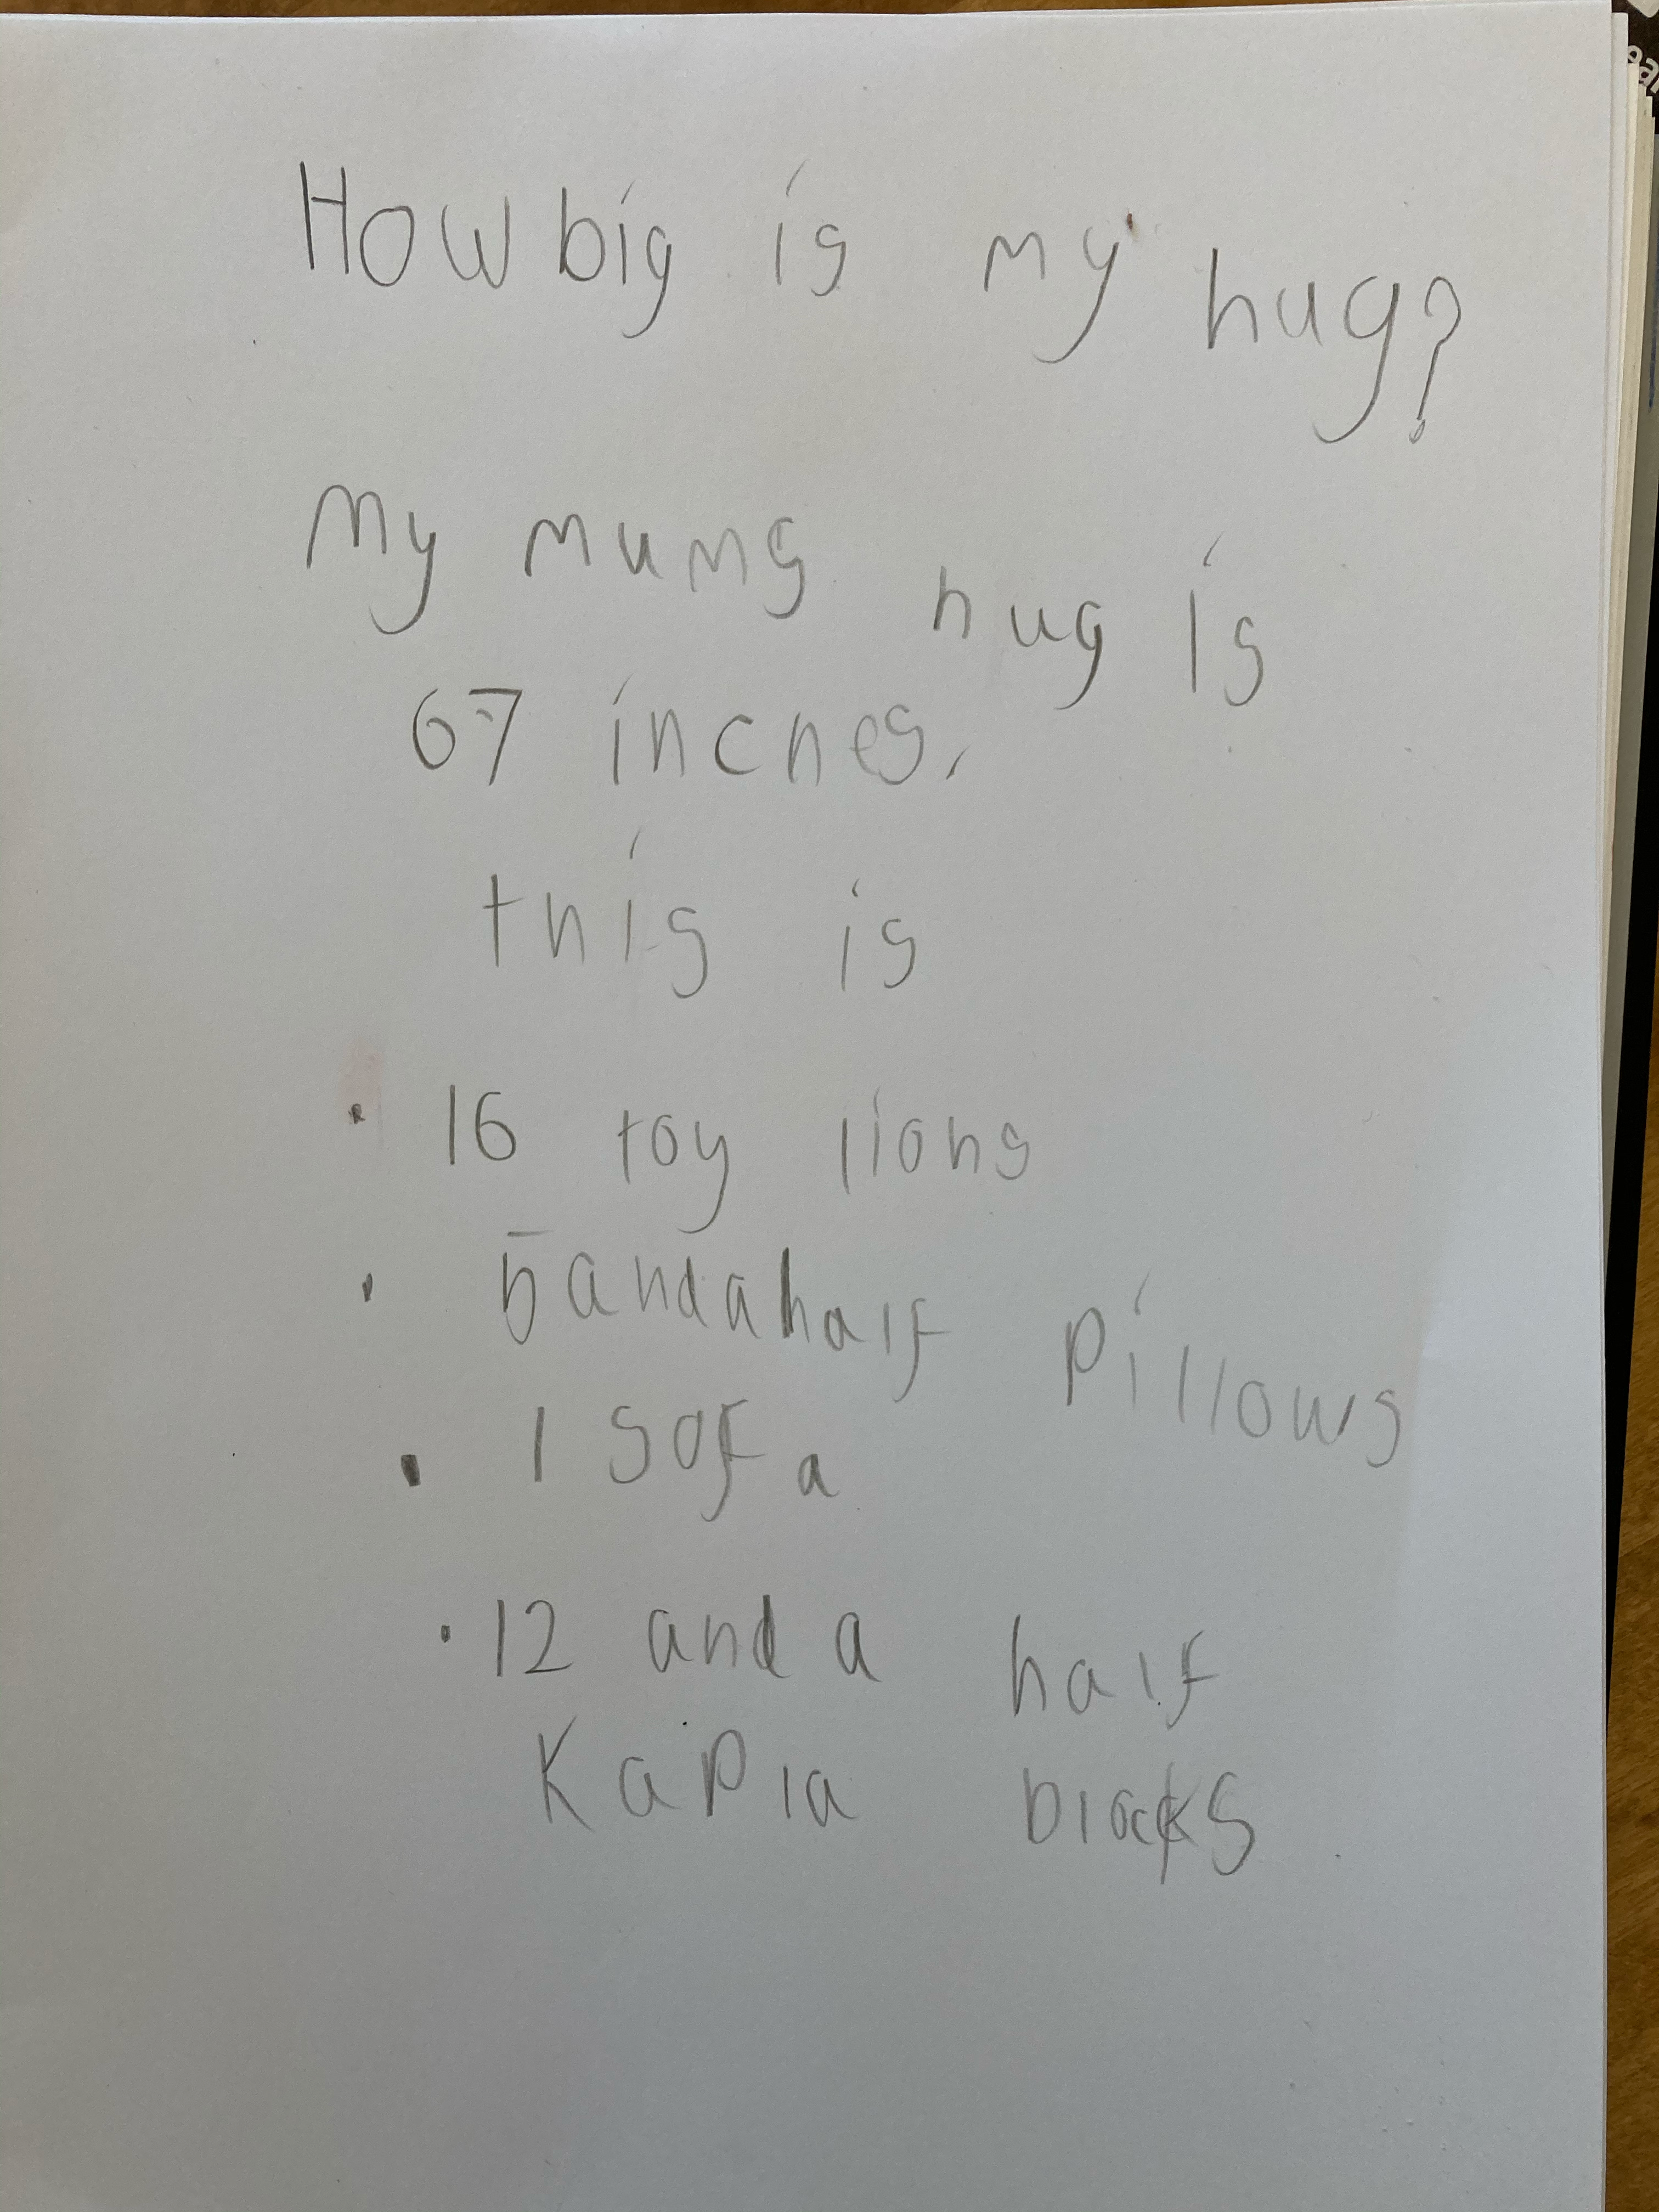 How big is my hug?
My mums hug is
67 inches.
this is
· 16 toy lions
· 5 and a half pillows
· 1 sofa
· 12 and a half
Kapla blocks